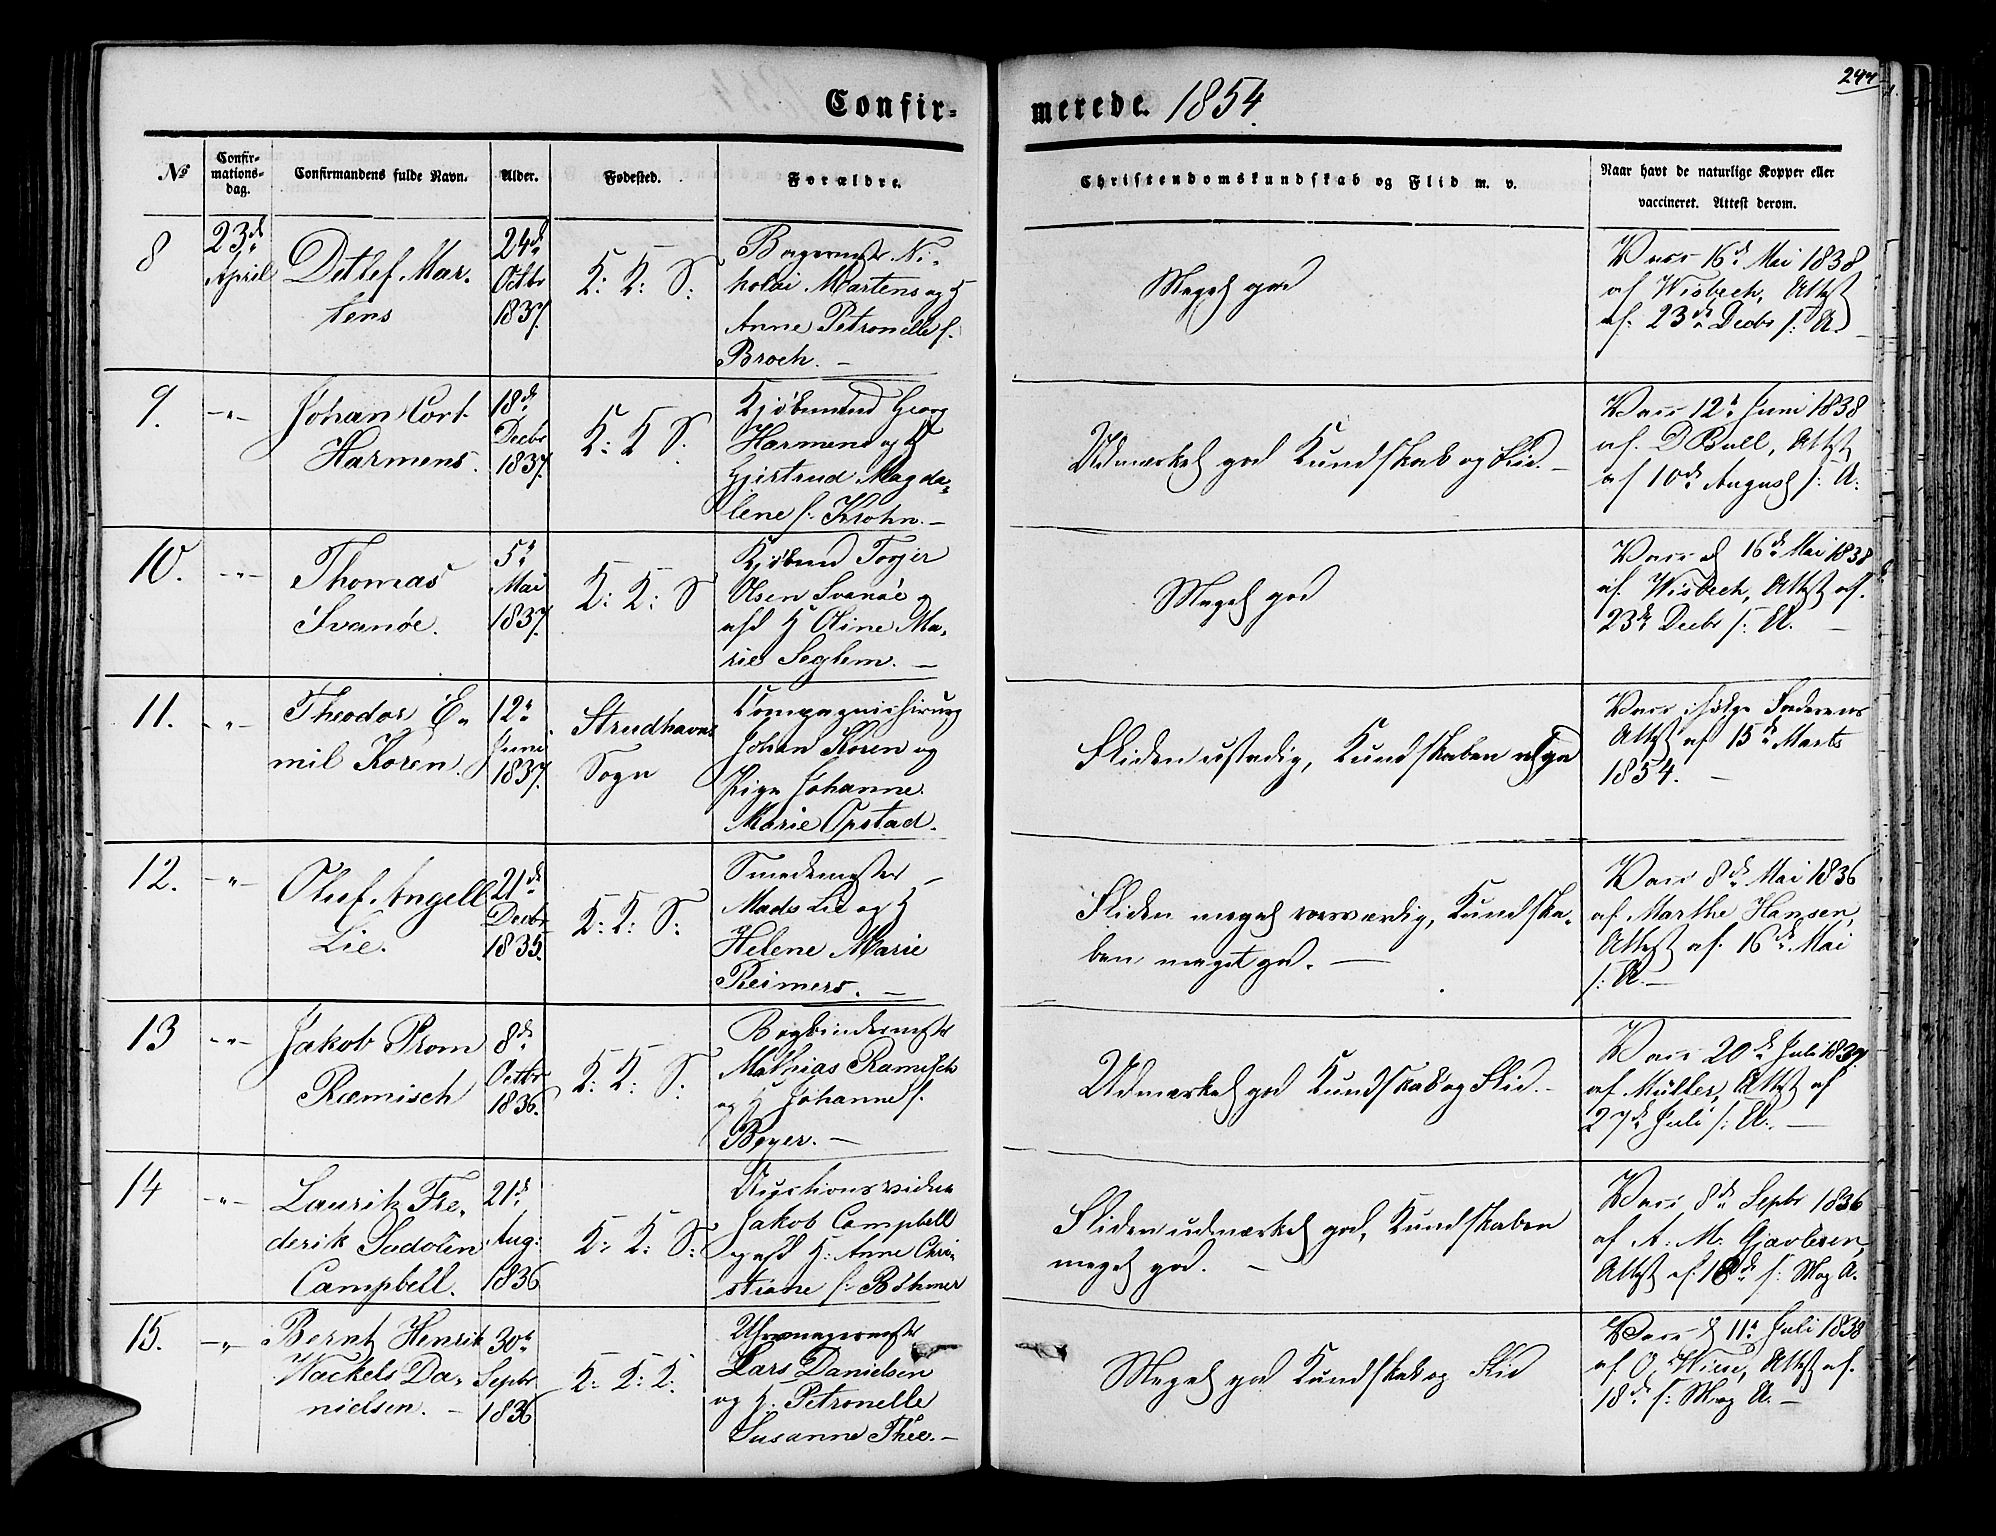 244
Confir- merede. 1854.
No
Confir-
mations-
dag.
Confirmandens fulde Navn.
Alder.
Fødested.
Forældre.
Christendomskundskab og Flid m. v.
Naar havt de naturlige Kopper eller
vaccineret. Attest derom.
8
23de
April
Ditlef Mar-
tens
24de
Octbr
1837.
K: K: S:
Bagermstr Ni-
kolai Martens og H
Anne Petronelle f.
Broch. —
Meget god
Vacc 16de Mai 1838
af Wisbech, Attest
af. 23de Decbr s: A.
9.
—„—
Johan Cort
Harmens.
18de
Decbr
1837.
K: K S.
Kjøbmand Georg
Harmens og H
Gjertrud Magda-
lene f. Krohn. —
Udmærket god Kundskab og Flid. —
Vacc 12te Juni 1838
af. D Bull, Attest
af 10de August s: A:
10.
—„—
Thomas
Svanøe.
5te
Mai
1837.
K: K: S
Kjøbmd Torjer
Olsen Svanøe og
afd H Oline Ma-
rie Seglem. —
Meget god
Vacc d 16de Mai 1838
af. Wisbech, Attest af.
23de Decbr s: A. —
11.
—„—
Theodor E-
mil Koren.
12te
Juni
1837.
Strudshavns
Sogn
Compagnichirurg
Johan Koren og
Pige Johanne
Marie Opstad.
Fliden ustadig, Kundskaben
Vacc ifølge Faderens
Attest af 15de Marts
1854. —
12.
—„—
Oluf Angell
Lie.
21de
Decbr
1835.
K: K: S:
Smedemester —
Mads Lie og H
Helene Marie
Reimers. —
Fliden meget rosværdig, Kundska-
ben meget god. —
Vacc 8de Mai 1836
af Marthe Hansen,
Attest af. 16de Mai
s: A. —
13
—„—
Jakob Prom
Ræmisch
8de
Octbr
1836.
K: K: S:
Bogbindermstr
Mathias Ramisch
og H Johanne f.
Beyer. —
Udmærket god Kundskab og Flid. —
Vacc 20de Juli 1837.
af Müller, Attest af
27de Juli s: A. —
14
—„—
Lauritz Fre-
derik Sadolin
Campbell.
21de
Aug:
1836
K: K: S:
Auctionsvidne
Jakob Campbell
og afd H: Anne Chri-
stiane f. Böhmer
Fliden udmærket god, Kundskaben
meget god. —
Vacc 8de Septbr 1836
af A: M: Gjævlesen,
Attest af. 18de s: Md A.
15.
—„
Bernt Henrik
Wackels Da-
nielsen. —
30te
Septbr
1836
K: K: K:
Uhrmagermstr
Lars Danielsen
og H. Petronelle
Susanne Thee. —
Meget god Kundskab og Flid
Vacc d 11te Juli 1838
af O. Wiese, Attest af.
18de s: Md A. —